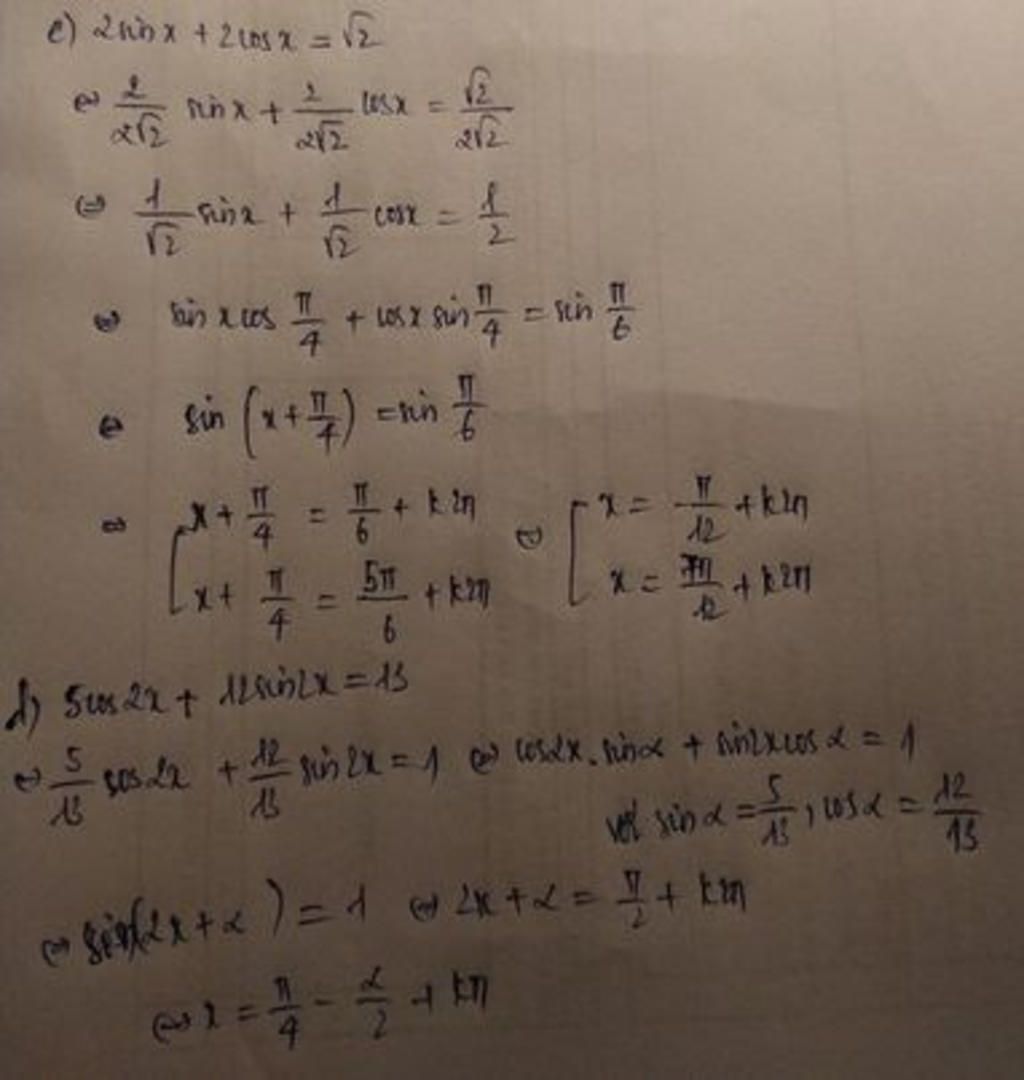 c) 2sin x + 2cos x = √2
⇔ 2/(2√2) sin x + 2/(2√2) cos x = √2/(2√2)
⇔ 1/√2 sin x + 1/√2 cos x = 1/2
⇔ sin x cos π/4 + cos x sin π/4 = sin π/6
⇔ sin (x + π/4) = sin π/6
⇔ [ x + π/4 = π/6 + k2π ⇔ [ x = π/12 + k2π
x + π/4 = 5π/6 + k2π x = 7π/12 + k2π
d) 5cos 2x + 12sin 2x = 13
⇔ 5/13 cos 2x + 12/13 sin 2x = 1 ⇔ cos 2x . sin α + sin 2x cos α = 1
với sin α = 5/13, cos α = 12/13
⇔ sin(2x + α) = 1 ⇔ 2x + α = π/2 + k2π
⇔ x = π/4 - α/2 + kπ